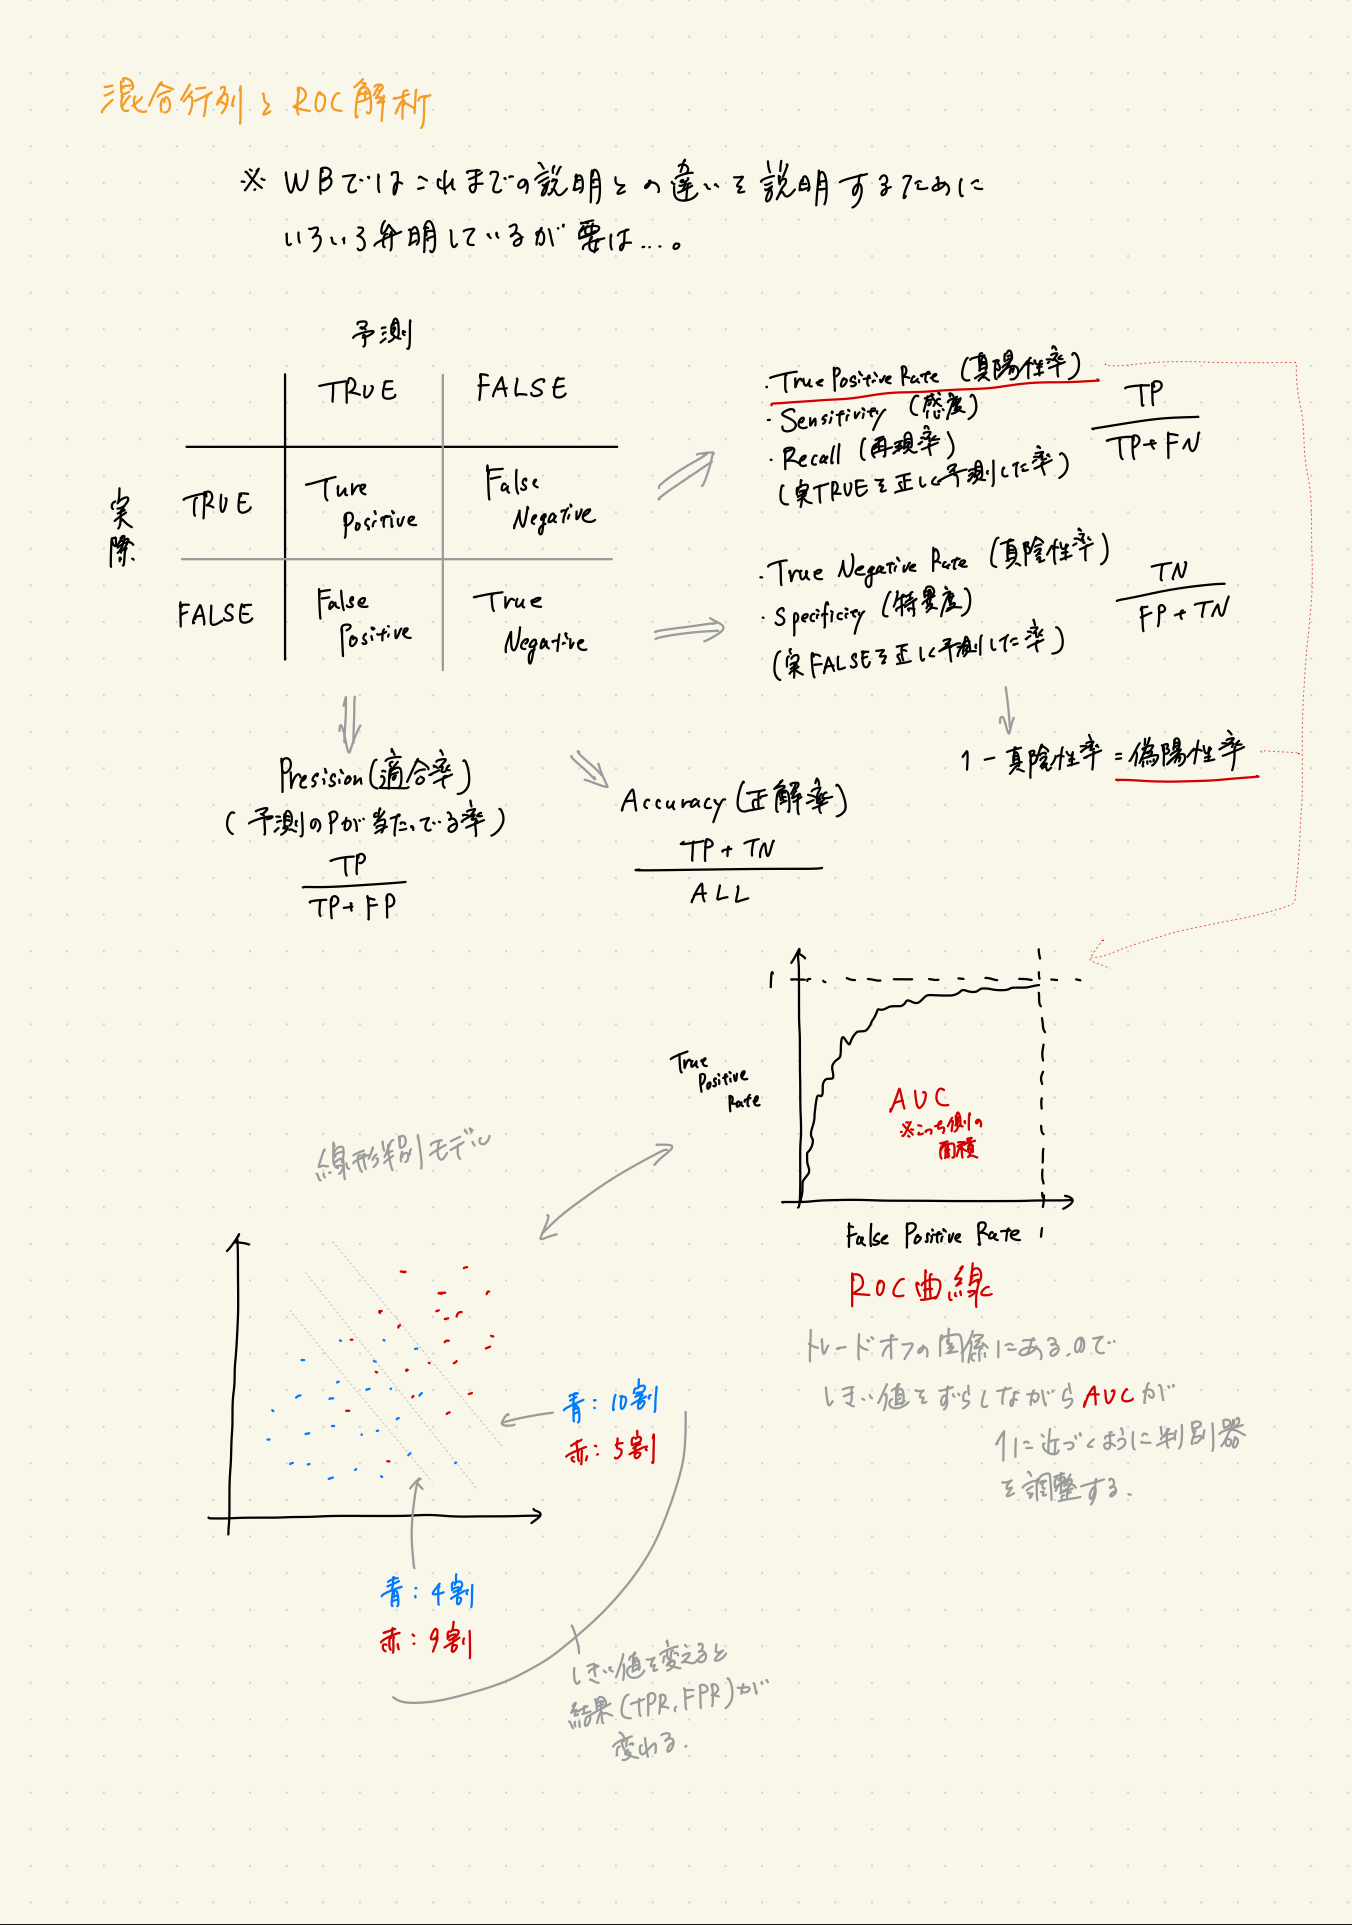 混合行列と ROC解析
※ WBではこれまでの説明との違いを説明するために
いろいろ弁明しているが要は...。
予測
TRUE FALSE
実際
TRUE
Ture Positive
False Negative
FALSE
False Positive
True Negative
・True Positive Rate (真陽性率)
・Sensitivity (感度)
・Recall (再現率)
(実TRUEを正しく予測した率)
TP
TP+FN
・True Negative Rate (真陰性率)
・Specificity (特異度)
(実FALSEを正しく予測した率)
TN
FP+TN
1－真陰性率=偽陽性率
Presision(適合率)
(予測のPが当たってる率)
TP
TP+FP
Accuracy(正解率)
TP+TN
ALL
1
True
Positive
Rate
AUC
※こっち側の
面積
False Positive Rate
1
ROC曲線
トレードオフの関係にあるので
しきい値をずらしながらAUCが
1に近づくように判別器
を調整する.
線形判別モデル
青:10割
赤:5割
青:4割
赤:9割
しきい値を変えると
結果(TPR,FPR)が
変わる.